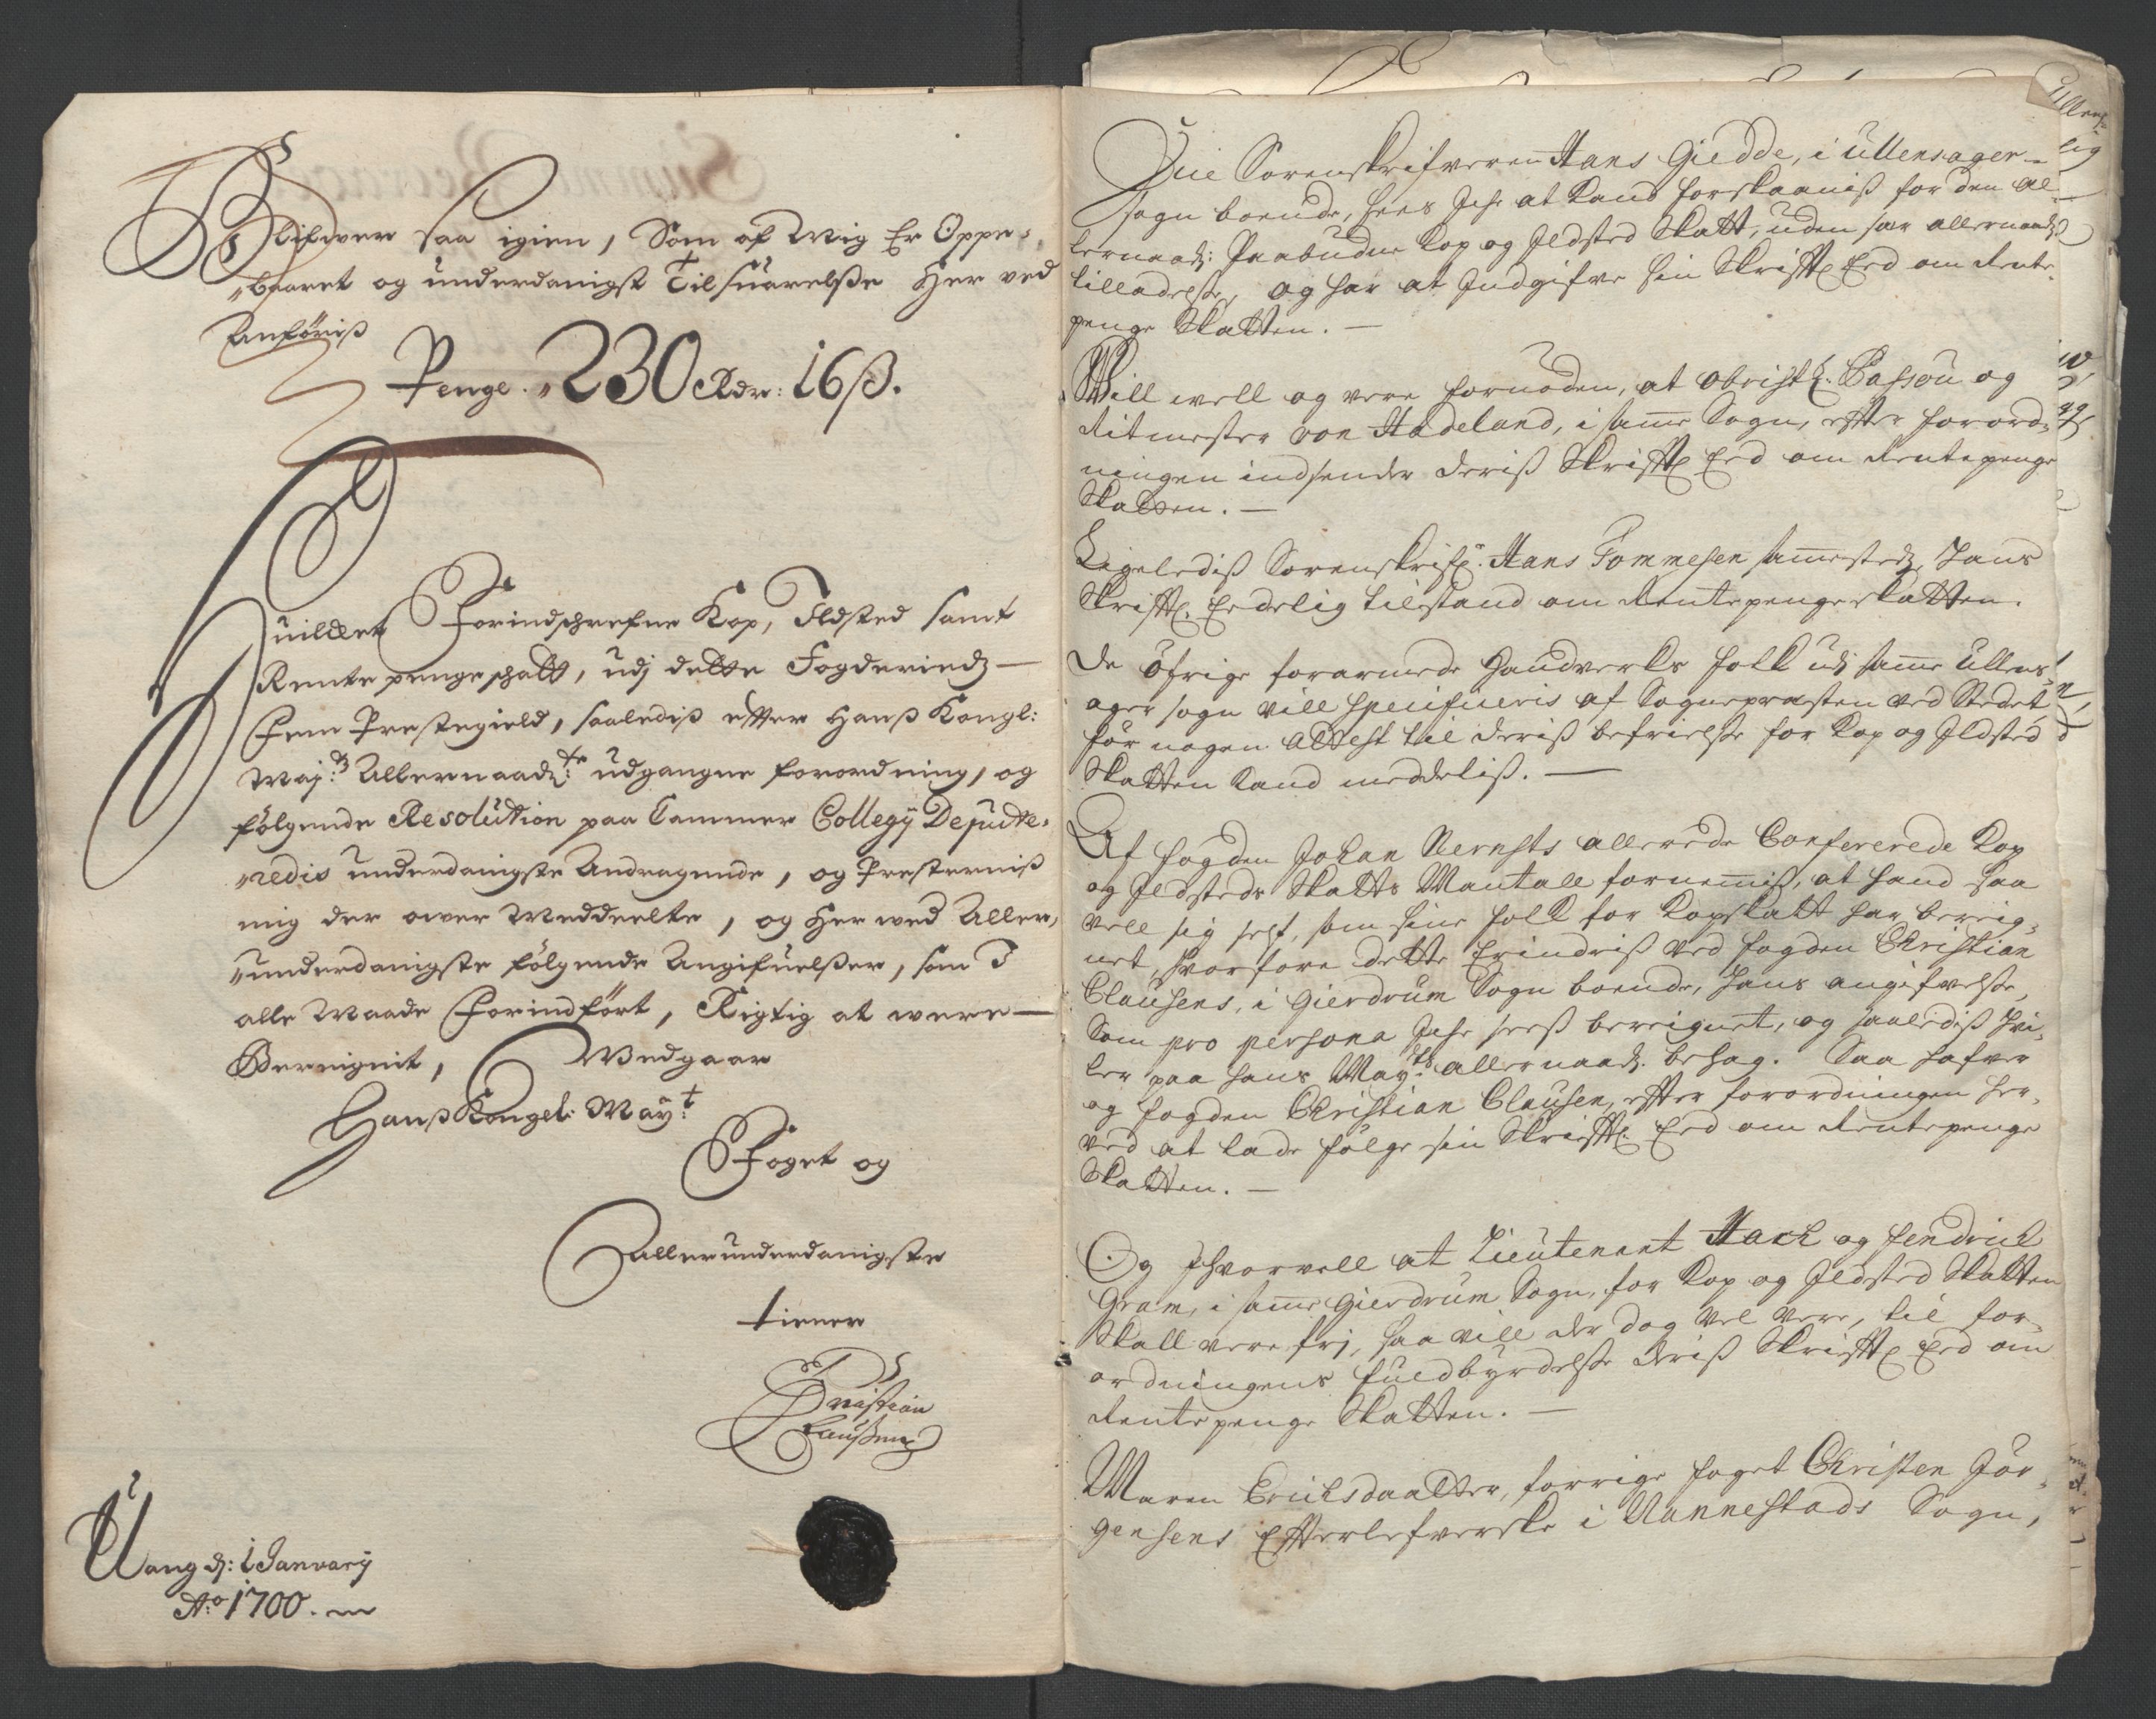 Blifwer saa igien, Som af Mig Er Oppe-
baaret og underdanigst Til suarelsse Her ved
Anföris
Penge. 230 Rdr: 16 ß.
Huilket Forindschrefne Kop, Ildsted samt
Rente penge schatt, udj dette Fogderie
Fem Prestegield, saalediß effter Hanß Kongl:
May:ts Allernaadste udgangne forordning, og
fölgende Resolution paa Cammer Collegij Depute-
redis underdanigste Andragende, og Presterniß
mig der ower Meddeelte, og Her wed Aller-
underdanigste fölgende Angifuelßer, som I
alle Maade Forindfört, Rigtig at were
Bereignit, Wedgaar
Hanß Kongel: May:t
Foget og
Allerunderdanigste
tiener
Christian
Claußen
Wang d: 1 January
Ao 1700.
Sorenskrifveren Hans Giedde, i Ullensager-
sogn boende, sees Iche at kand forskaaniß for den al-
lernaad: Paabudne Kop og Ildsted Skatt, uden sær allernaad:
tilladelse, og har at Indgifve sin Skrifftl Eed om Rente-
penge Skatten.
Will well og vere fornøden, at Obristl. Bassou og
Ritmester von Hadeland, i samme Sogn, effter forord-
ningen indsender deriß Skrifftl Eed om Rentepenge
Skatten.
Ligelediß Sorenskrifr. Hans Tommesen sammesteds, hans
Skrifftl. Eedelig tilstand om Rentepenge skatten.
De öfrige forarmede Handverks folk udj samme Ullens-
ager sogn vill specificeris af Sognepræsten ved Stedet
för nogen Attest til deriß befrielse for Kop og Ildsted
Skatten kand meddeliß.
Af fogden Johan Nernsts allerede Confererede Kop
og Ildsteds Skatts Mantall fornemmiß, at hand saa
vell sig self, som sine folk for Kopskatt har bereig-
net, hvorfore dette Erindriß ved fogden Christian
Clausens, i Gierdrum Sogn boende, hans angifvelse,
Som pro persona Iche seeß bereignet, og saalediß hvi-
ler paa hans May:ts allernaad. behag. Saa hafver
og fogden Christian Clausen, effter forordningen her-
ved at lade fölge sin Skrifftl. Eed om Rentepenge
Skatten.
Og ihvorvell at Lieutenant Hack og Hendrich
Gram, i samme Gierdrum Sogn, for Kop og Ildsted Skatten
Skall vere frj, saa vill der dog vel vere, til for-
ordningens fuldbyrdelse deriß Skrifftl Eed om
Rentepenge Skatten.
Maren Erichsdaatter, forrige foget Christen Jör-
gensens Effterlefverske i Nannestads Sogn,